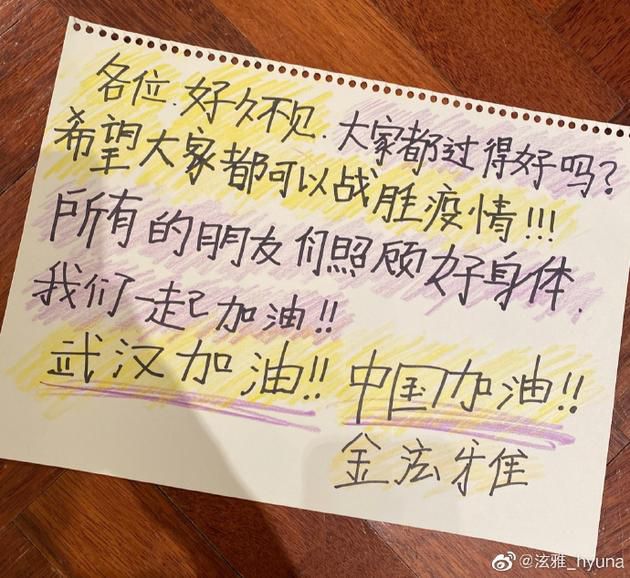 各位.好久不见.大家都过得好吗?
希望大家都可以战胜疫情!!!
所有的朋友们照顾好身体.
我们一起加油!!
武汉加油!! 中国加油!!
金泫雅
@泫雅_hyuna